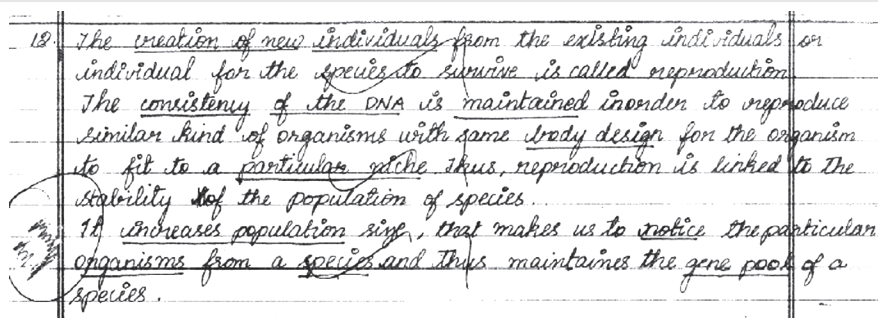 12. The creation of new individuals from the existing individuals or
individual for the species to survive is called reproduction.
The consistency of the DNA is maintained inorder to reproduce
similar kind of organisms with same body design for the organism
to fit to a particular niche Thus, reproduction is linked to the
stability of the population of species.
It increases population size, that makes us to notice the particular
organisms from a species and thus maintaines the gene pool of a
species.